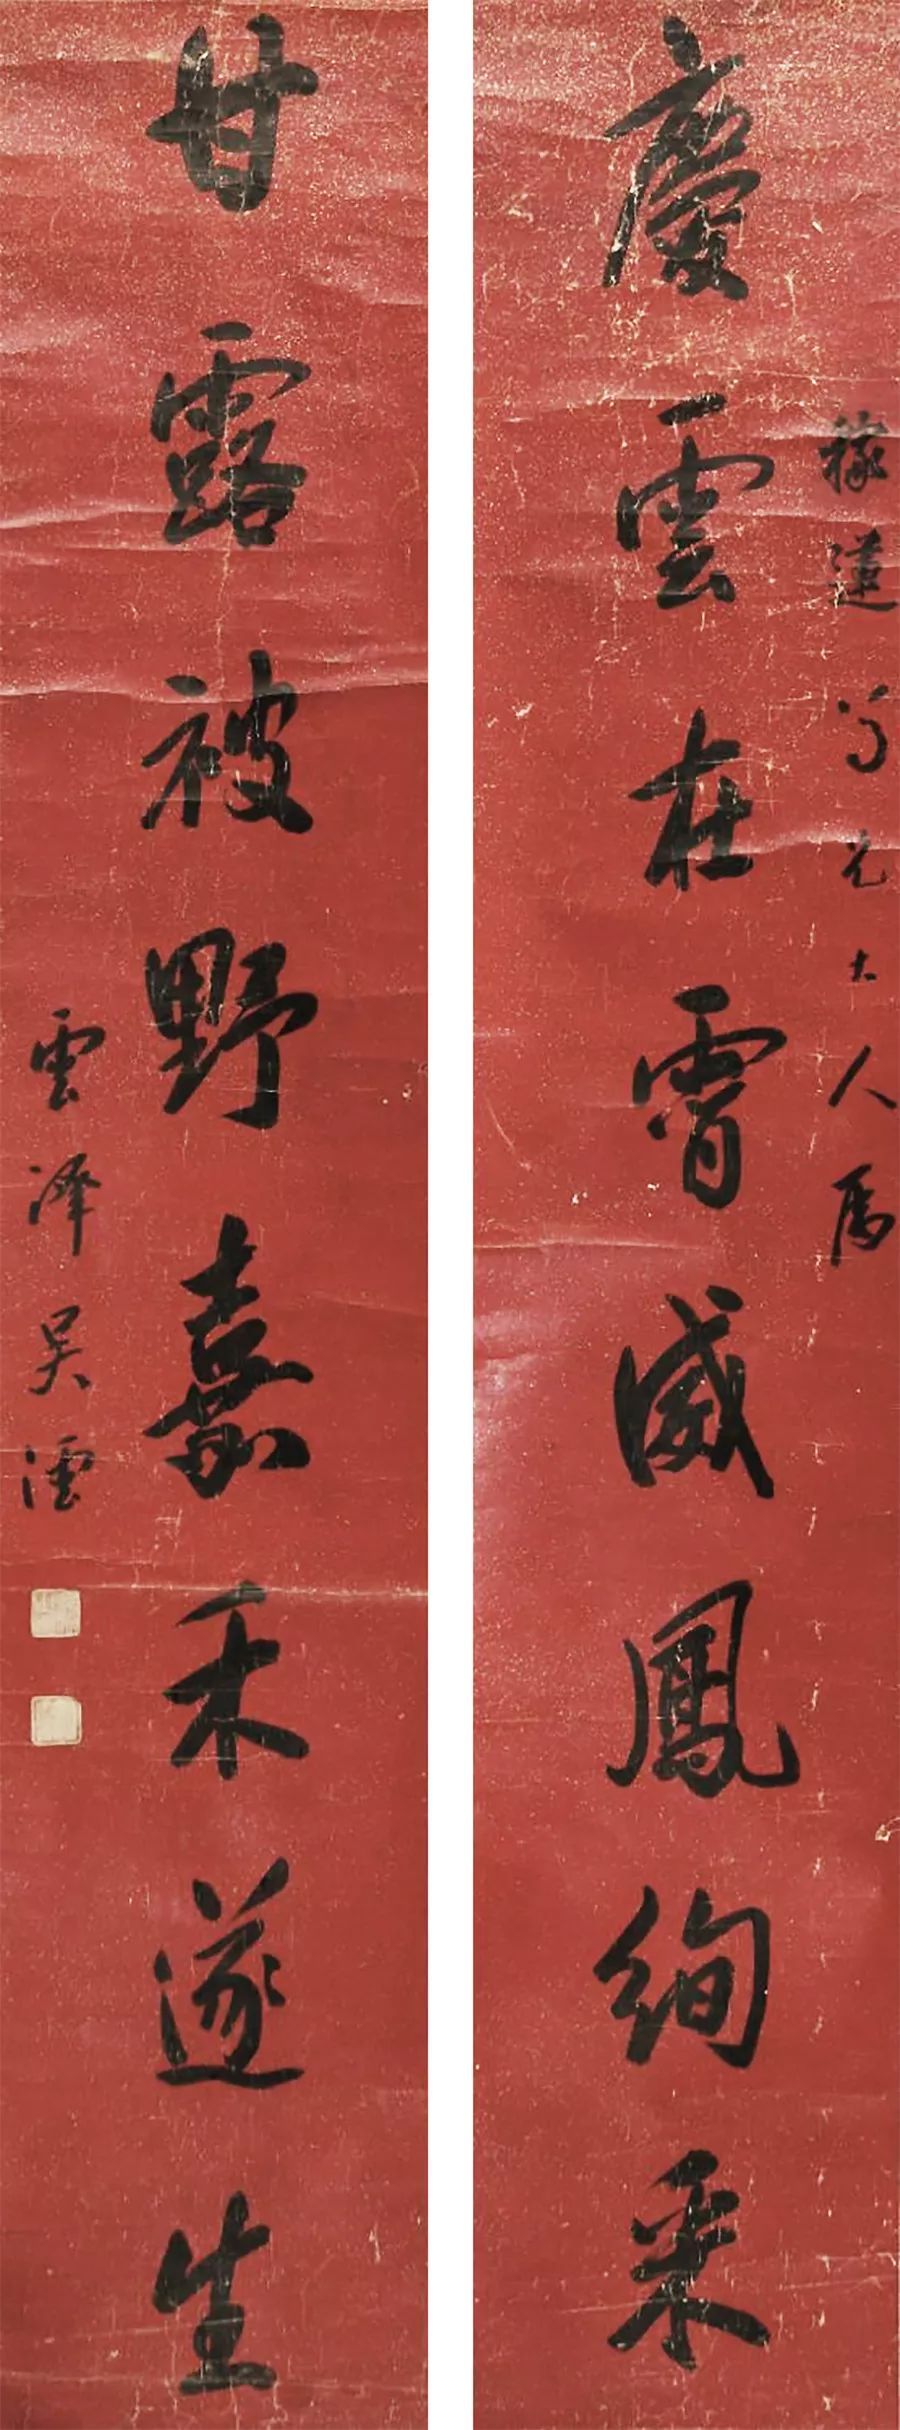 稼蓮兄大人属
慶雲在霄威鳳絢采
甘露被野嘉禾遂生
雲澤吴澐